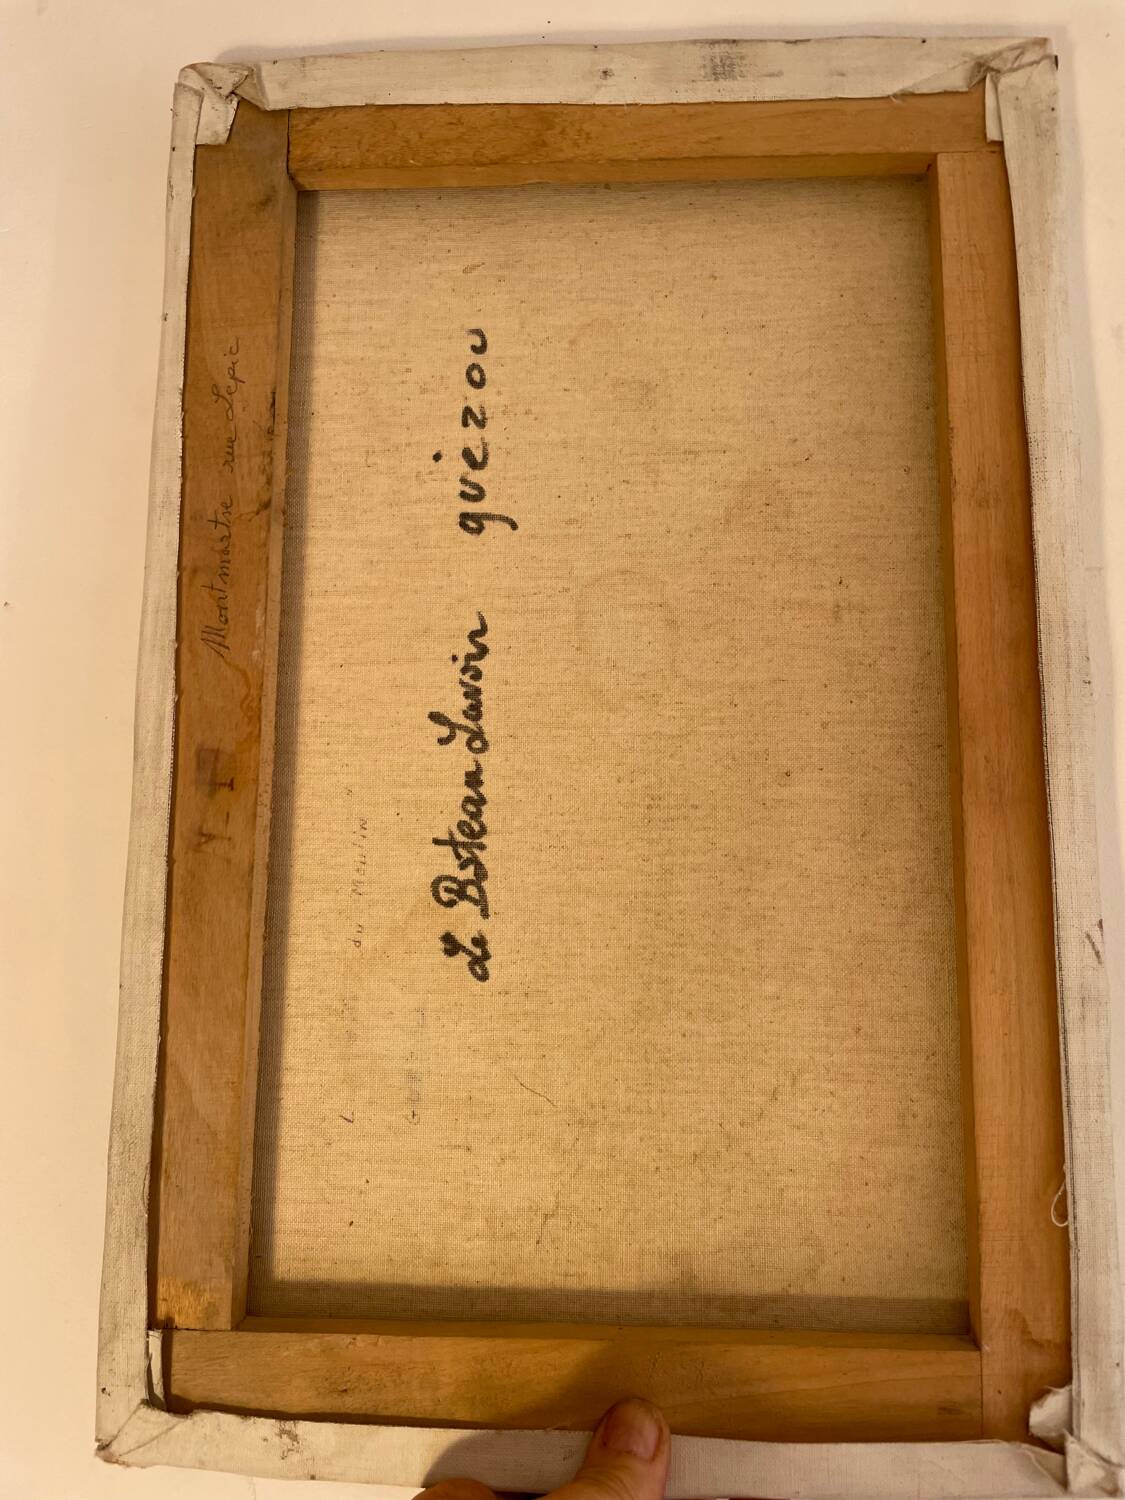 Montmartre rue Lepic
du Moulin
Le Bateau Lavoir guezou